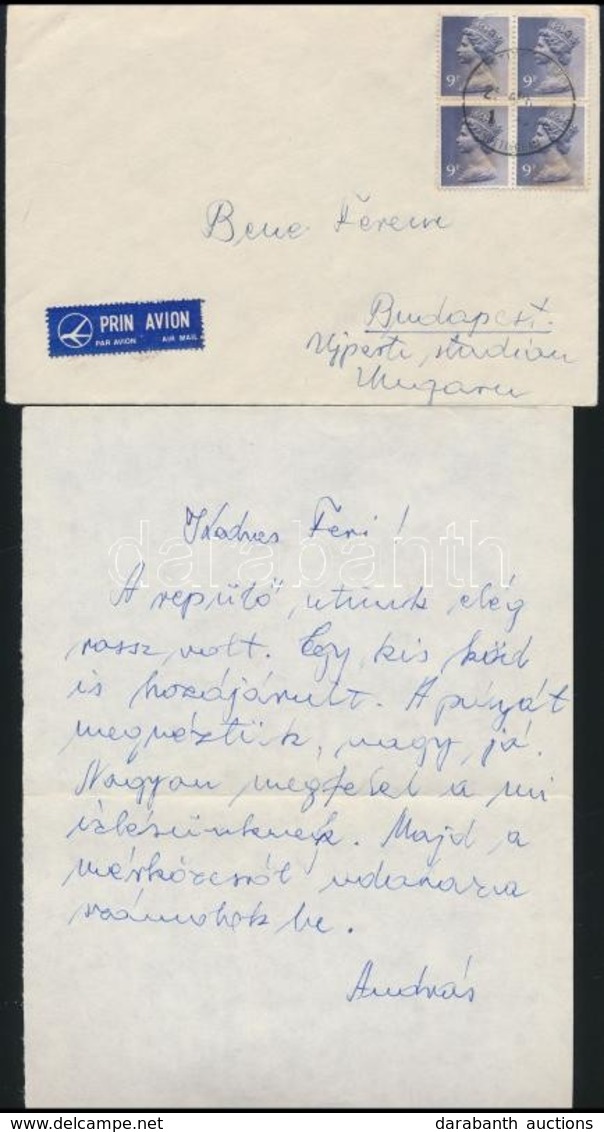 9P 9P
9P 9P
Bene Ferenc
PRIN AVION
PAR AVION AIR MAIL
Budapest.
Ujpesti, stadion
Ungarn
darabanth
Kedves Feri!
A repülő, utunk elég
rossz volt. Egy kis köd
is hozájárult. A pályát
megnéztük, nagy, jó.
Nagyon megfelel a mi
izlésünknek. Majd a
mérkőzésről utánna
számolok be.
András
www.delcampe.net
darabanth auctions